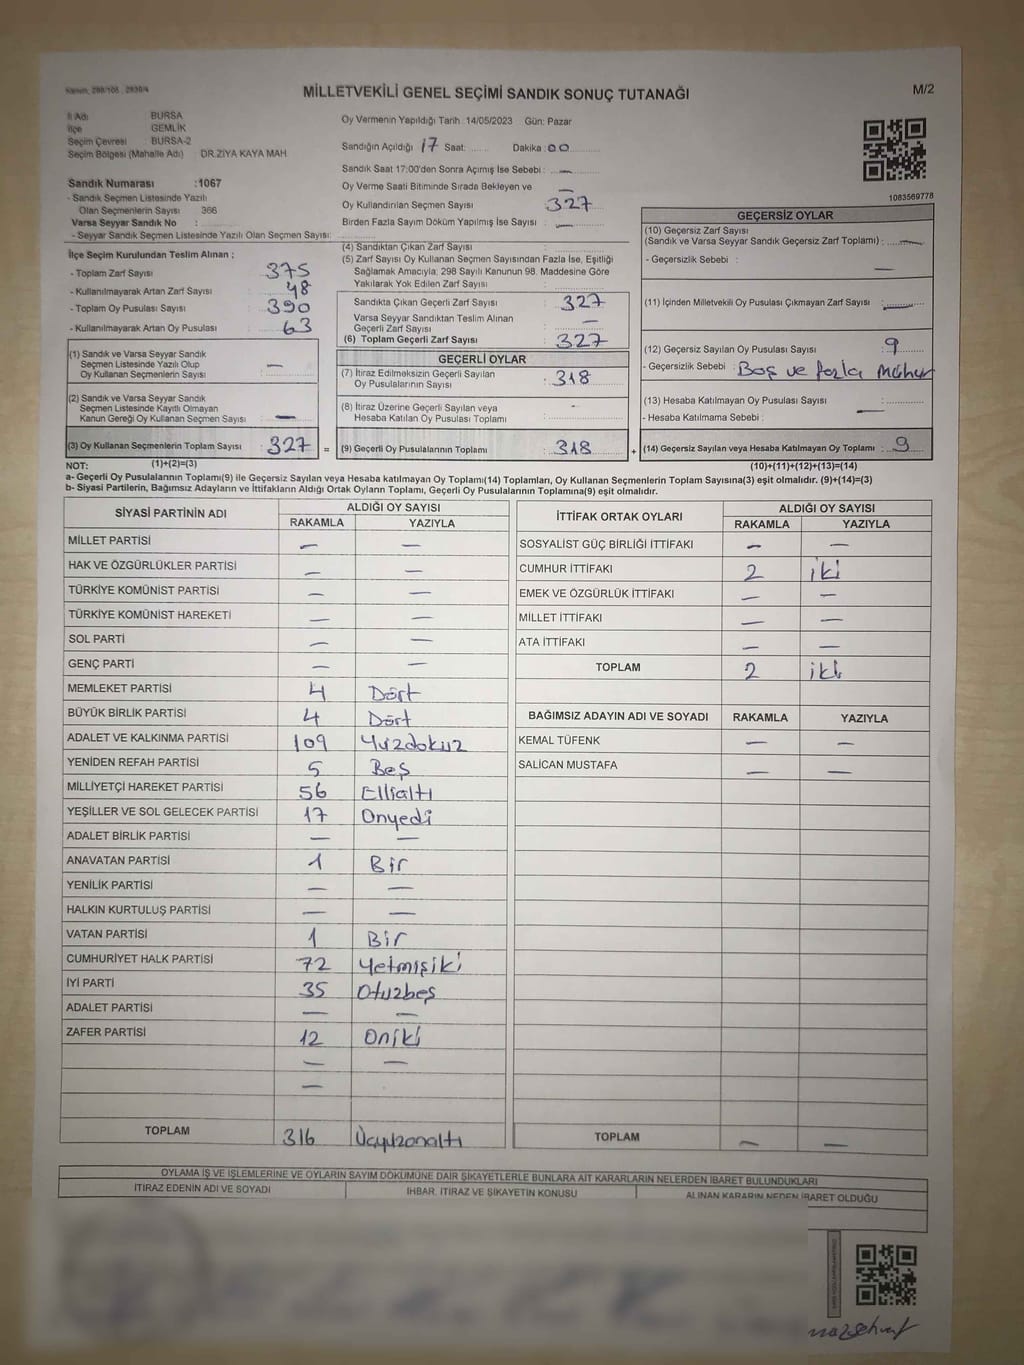 Kanun, 298/105 , 2839/4
MİLLETVEKİLİ GENEL SEÇİMİ SANDIK SONUÇ TUTANAĞI
M/2
İl Adı : BURSA
İlçe : GEMLİK
Seçim Çevresi : BURSA-2
Seçim Bölgesi (Mahalle Adı) : DR.ZIYA KAYA MAH
Sandık Numarası :1067
- Sandık Seçmen Listesinde Yazılı
Olan Seçmenlerin Sayısı : 366
Varsa Seyyar Sandık No :
- Seyyar Sandık Seçmen Listesinde Yazılı Olan Seçmen Sayısı:
İlçe Seçim Kurulundan Teslim Alınan ;
- Toplam Zarf Sayısı : 375
- Kullanılmayarak Artan Zarf Sayısı : 48
- Toplam Oy Pusulası Sayısı : 390
- Kullanılmayarak Artan Oy Pusulası : 63
(1) Sandık ve Varsa Seyyar Sandık
Seçmen Listesinde Yazılı Olup
Oy Kullanan Seçmenlerin Sayısı : —
(2) Sandık ve Varsa Seyyar Sandık
Seçmen Listesinde Kayıtlı Olmayan
Kanun Gereği Oy Kullanan Seçmen Sayısı : —
(3) Oy Kullanan Seçmenlerin Toplam Sayısı : 327
(1)+(2)=(3)
Oy Vermenin Yapıldığı Tarih :14/05/2023 Gün: Pazar
Sandığın Açıldığı 17 Saat: Dakika: 00
Sandık Saat 17:00'den Sonra Açımış İse Sebebi : —
Oy Verme Saati Bitiminde Sırada Bekleyen ve —
Oy Kullandırılan Seçmen Sayısı : 327
Birden Fazla Sayım Döküm Yapılmış İse Sayısı : —
(4) Sandıktan Çıkan Zarf Sayısı :
(5) Zarf Sayısı Oy Kullanan Seçmen Sayısından Fazla İse, Eşitliği
Sağlamak Amacıyla, 298 Sayılı Kanunun 98. Maddesine Göre
Yakılarak Yok Edilen Zarf Sayısı :
Sandıkta Çıkan Geçerli Zarf Sayısı : 327
Varsa Seyyar Sandıktan Teslim Alınan
Geçerli Zarf Sayısı : —
(6) Toplam Geçerli Zarf Sayısı : 327
GEÇERLİ OYLAR
(7) İtiraz Edilmeksizin Geçerli Sayılan
Oy Pusulalarının Sayısı : 318
(8) İtiraz Üzerine Geçerli Sayılan veya -
Hesaba Katılan Oy Pusulası Toplamı :
= (9) Geçerli Oy Pusulalarının Toplamı : 318
1083569778
GEÇERSİZ OYLAR
(10) Geçersiz Zarf Sayısı
(Sandık ve Varsa Seyyar Sandık Geçersiz Zarf Toplamı) : —
- Geçersizlik Sebebi : —
(11) İçinden Milletvekili Oy Pusulası Çıkmayan Zarf Sayısı : —
(12) Geçersiz Sayılan Oy Pusulası Sayısı : 9
- Geçersizlik Sebebi : Boş ve fazla mühür
(13) Hesaba Katılmayan Oy Pusulası Sayısı : —
- Hesaba Katılmama Sebebi :
+ (14) Geçersiz Sayılan veya Hesaba Katılmayan Oy Toplamı : 9
(10)+(11)+(12)+(13)=(14)
NOT:
a- Geçerli Oy Pusulalarının Toplamı(9) ile Geçersiz Sayılan veya Hesaba katılmayan Oy Toplamı(14) Toplamları, Oy Kullanan Seçmenlerin Toplam Sayısına(3) eşit olmalıdır. (9)+(14)=(3)
b- Siyasi Partilerin, Bağımsız Adayların ve İttifakların Aldığı Ortak Oyların Toplamı, Geçerli Oy Pusulalarının Toplamına(9) eşit olmalıdır.
SİYASİ PARTİNİN ADI ALDIĞI OY SAYISI
RAKAMLA YAZIYLA
MİLLET PARTİSİ — —
HAK VE ÖZGÜRLÜKLER PARTİSİ — —
TÜRKİYE KOMÜNİST PARTİSİ — —
TÜRKİYE KOMÜNİST HAREKETİ — —
SOL PARTİ — —
GENÇ PARTİ — —
MEMLEKET PARTİSİ 4 Dört
BÜYÜK BİRLİK PARTİSİ 4 Dört
ADALET VE KALKINMA PARTİSİ 109 Yüzdokuz
YENİDEN REFAH PARTİSİ 5 Beş
MİLLİYETÇİ HAREKET PARTİSİ 56 Ellialtı
YEŞİLLER VE SOL GELECEK PARTİSİ 17 Onyedi
ADALET BİRLİK PARTİSİ — —
ANAVATAN PARTİSİ 1 Bir
YENİLİK PARTİSİ — —
HALKIN KURTULUŞ PARTİSİ — —
VATAN PARTİSİ 1 Bir
CUMHURİYET HALK PARTİSİ 72 Yetmişiki
İYİ PARTİ 35 Otuzbeş
ADALET PARTİSİ — —
ZAFER PARTİSİ 12 Oniki
— —
—
TOPLAM 316 Üçyüzonaltı
İTTİFAK ORTAK OYLARI ALDIĞI OY SAYISI
RAKAMLA YAZIYLA
SOSYALİST GÜÇ BİRLİĞİ İTTİFAKI — —
CUMHUR İTTİFAKI 2 iki
EMEK VE ÖZGÜRLÜK İTTİFAKI — —
MİLLET İTTİFAKI — —
ATA İTTİFAKI — —
TOPLAM 2 iki
BAĞIMSIZ ADAYIN ADI VE SOYADI RAKAMLA YAZIYLA
KEMAL TÜFENK — —
SALİCAN MUSTAFA — —
TOPLAM — —
OYLAMA İŞ VE İŞLEMLERİNE VE OYLARIN SAYIM DÖKÜMÜNE DAİR ŞİKAYETLERLE BUNLARA AİT KARARLARIN NELERDEN İBARET BULUNDUKLARI
İTİRAZ EDENİN ADI VE SOYADI İHBAR, İTİRAZ VE ŞİKAYETİN KONUSU ALINAN KARARIN NEDEN İBARET OLDUĞU